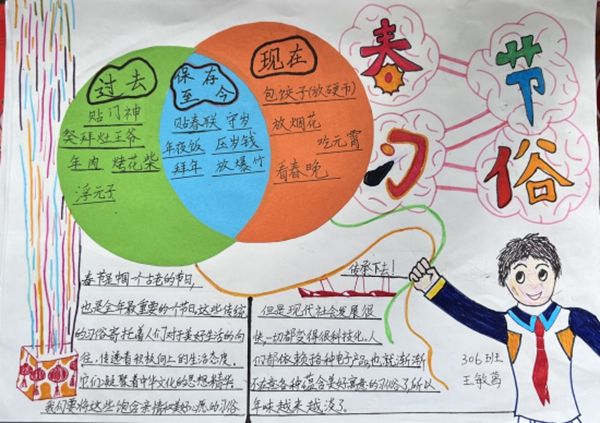 春节习俗
过去
贴门神
祭拜灶王爷
年肉 烤花柴
浮元子
保存至今
贴春联 守岁
年夜饭 压岁钱
拜年 放爆竹
现在
包饺子(放硬币)
放烟花
吃元宵
看春晚
传承下去!
春节是中国一个古老的节日,
也是全年最重要的个节日,这些传统
的习俗寄托着人们对于美好生活的向
往,传递着积极向上的生活态度.
它们凝聚着中华文化的思想精华
我们要将这些饱含亲情和美好心愿的习俗
但是现代社会发展很
快,一切都变得很科技化,人
们都依赖各种电子产品,也就渐渐
不在意各种蕴含美好寓意的习俗了,所以
年味越来越淡了。
306班
王敏